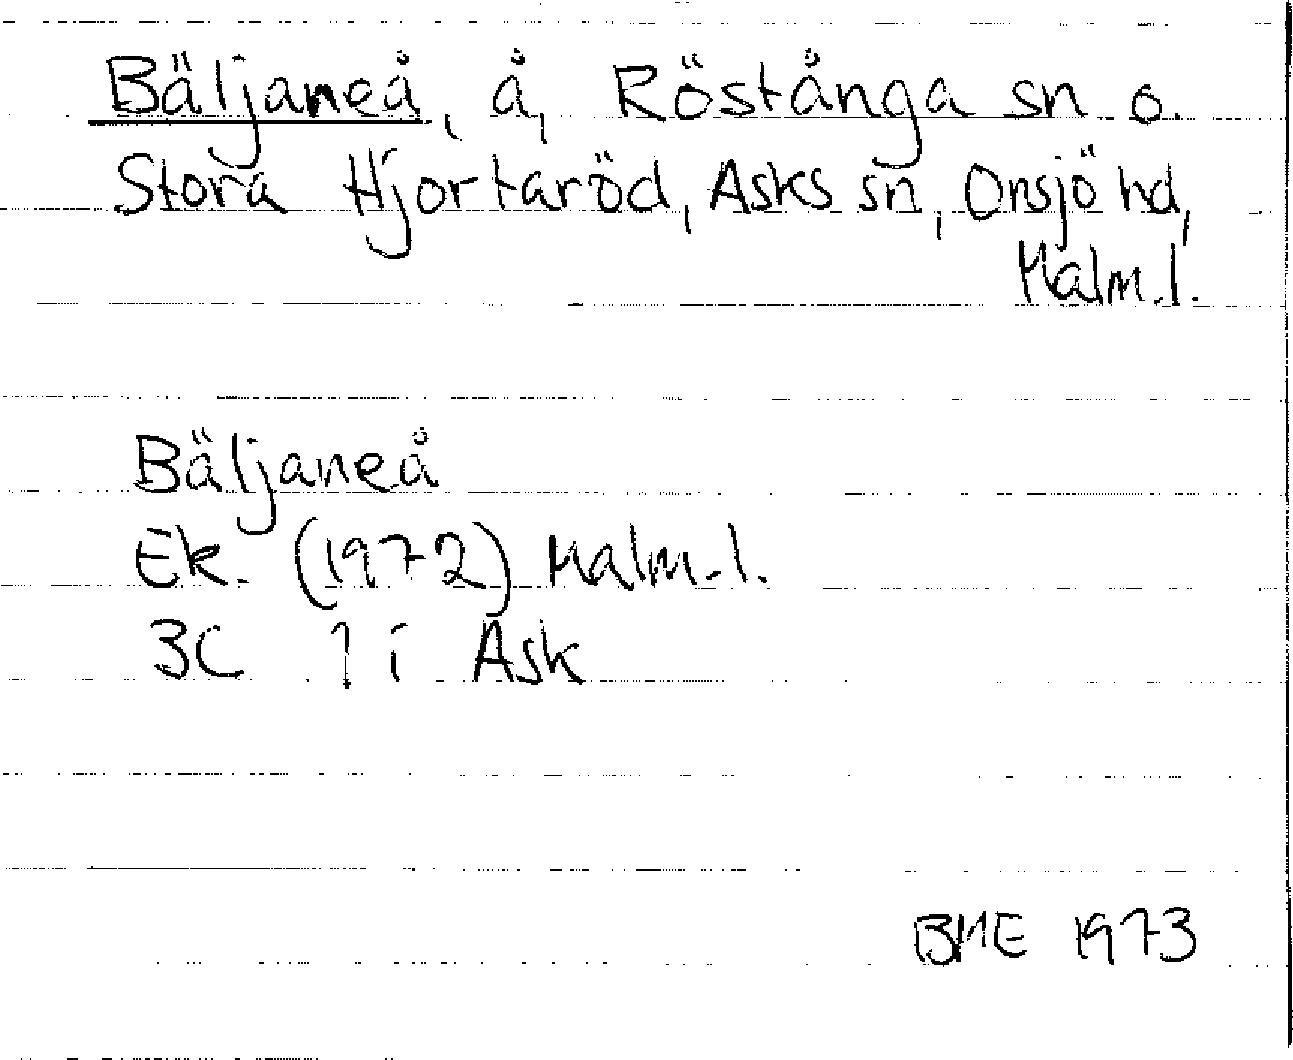 Bäljaneå, å, Röstånga sn o.
Stora Hjortaröd, Asks sn, Onsjö hd,
Malm.l.
Bäljaneå
Ek. (1972) Malm.l.
3C 1 i Ask
BME 1973